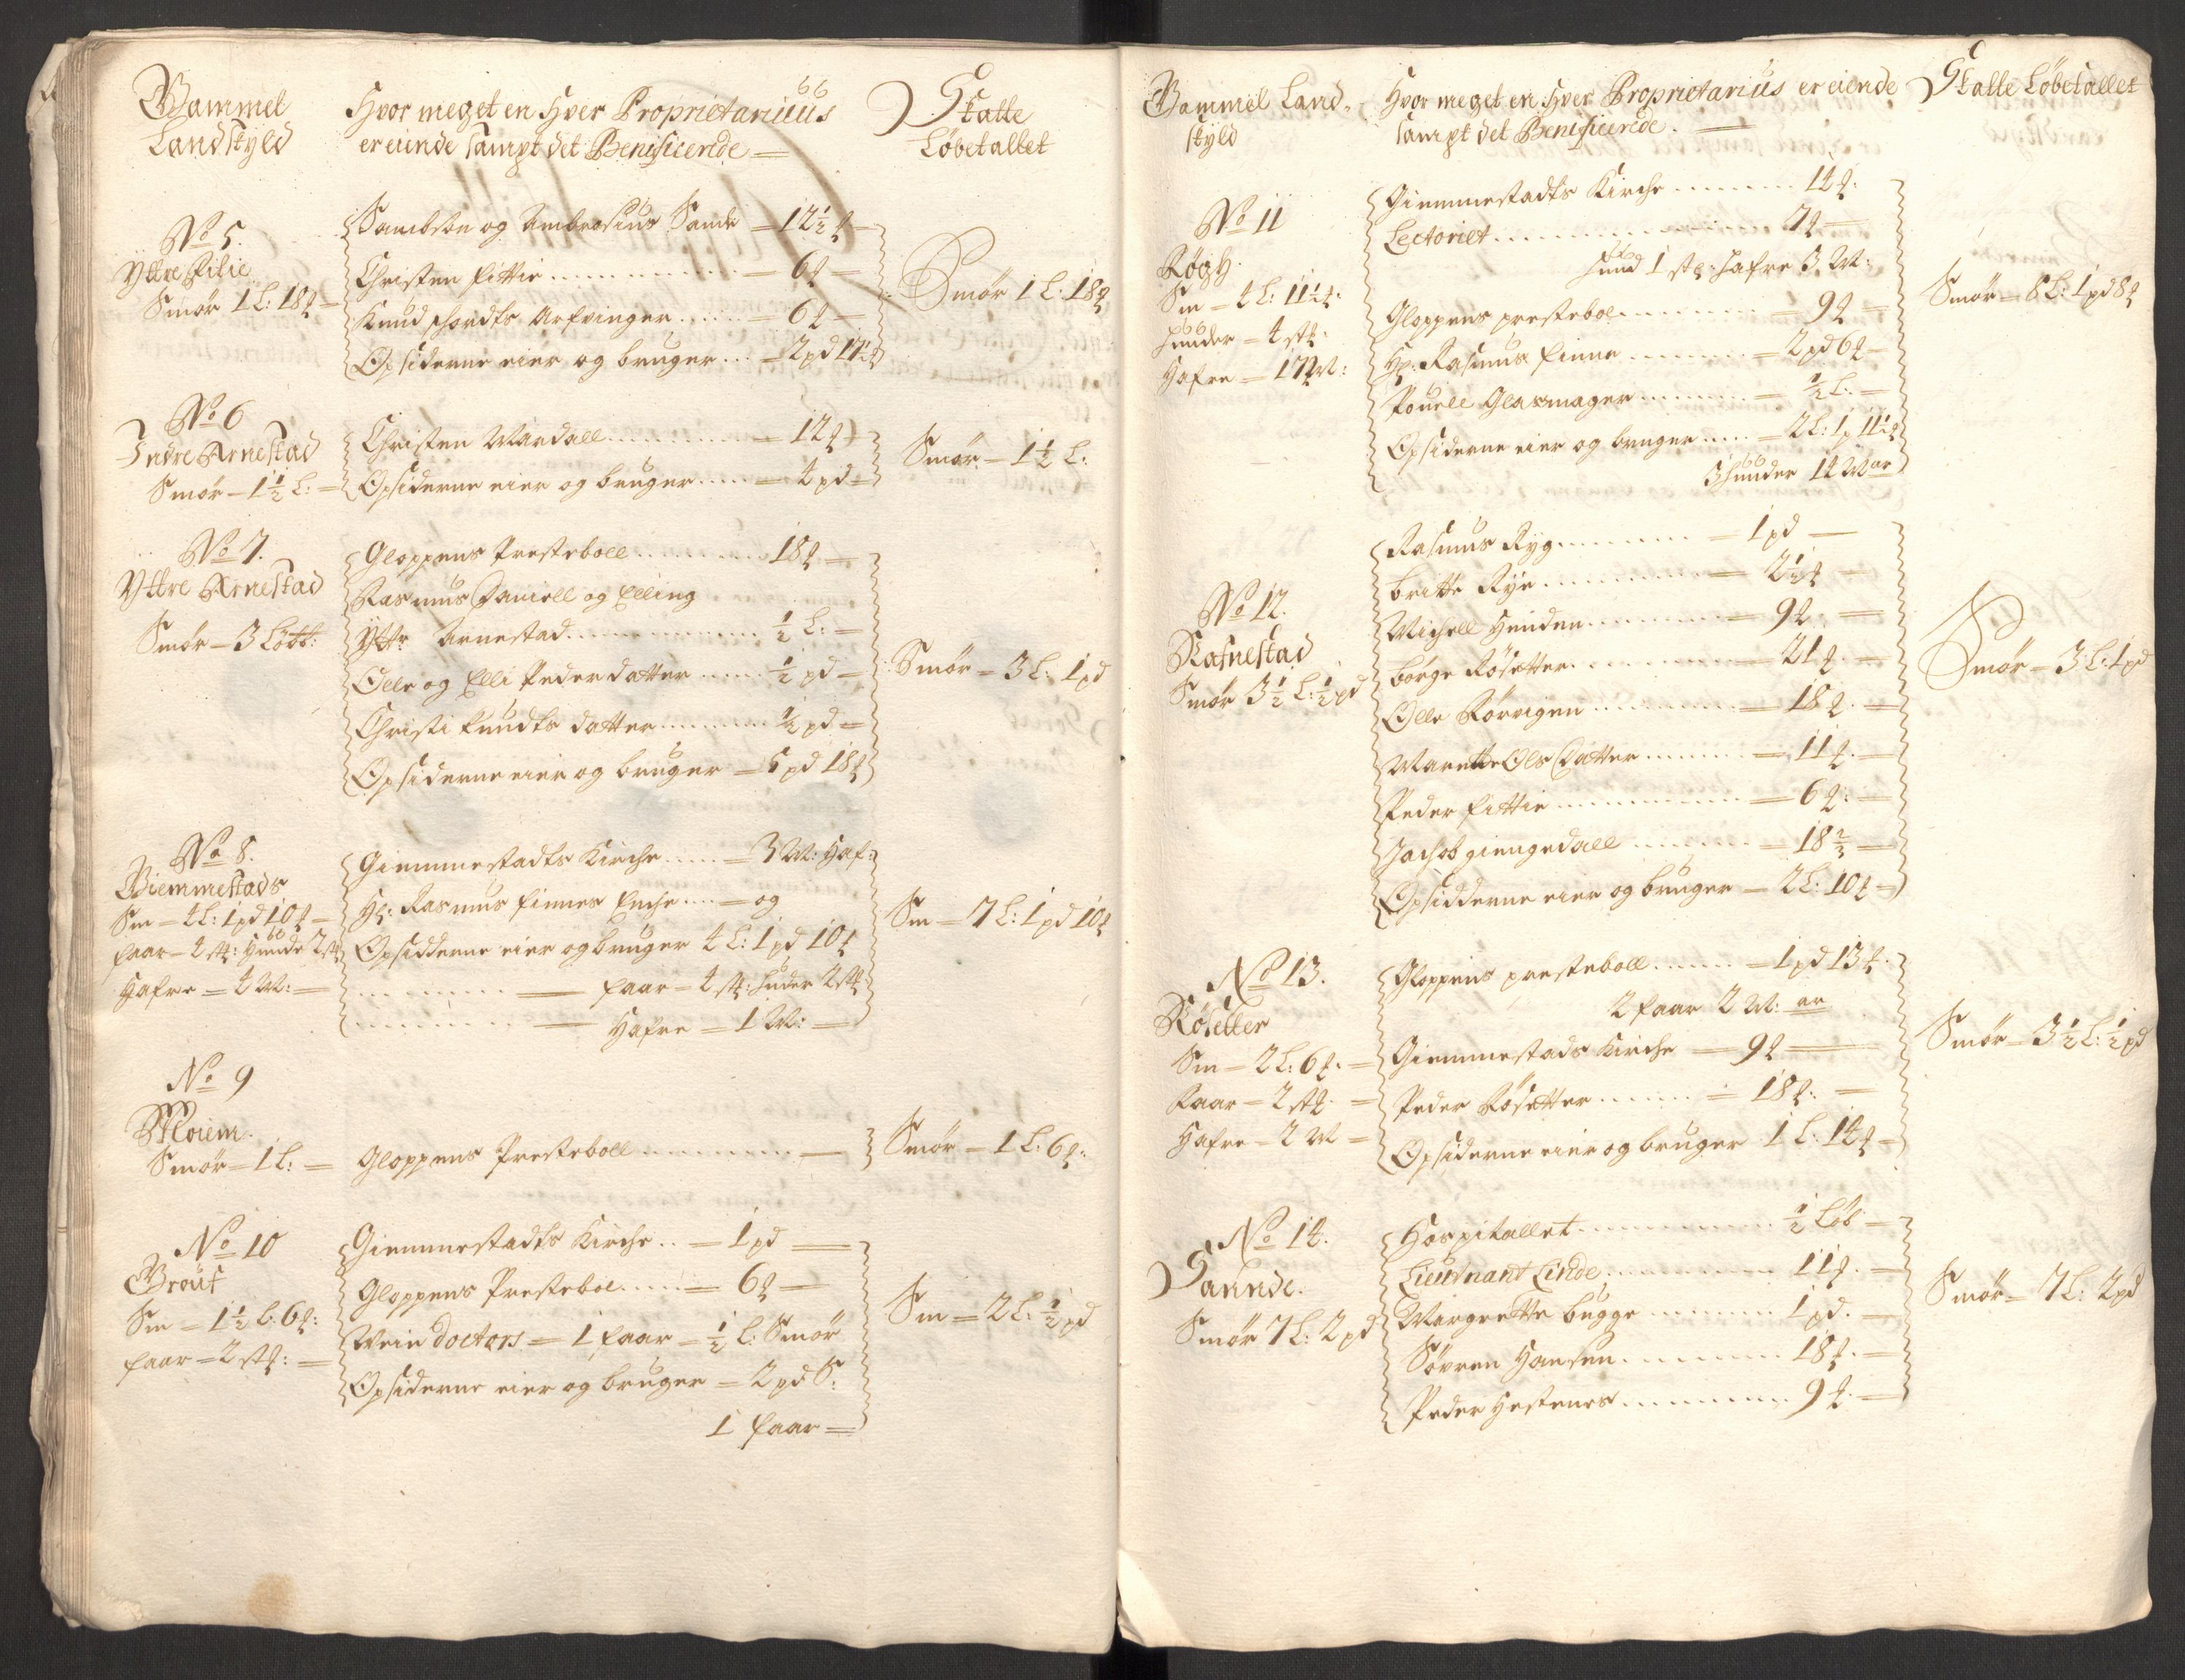 Gammel
Landskyld
Hvor meget en Hver Proprietariuus
er eiende sampt det Benificerede
Skatte
Løbetallet
No 5.
Yttre Eilie
Smør 1 L: 18 ꝑ
Sambson og Ambrosius Sande 12½ ꝑ
Christen fittie 6 ꝑ
Knud fiordts Arfvinger 6 ꝑ
Opsiderne eier og bruger 2 pd 11½ ꝑ
Smør 1 L: 18 ꝑ
No 6
Indre Arnestad
Smør 1½ L:
Christen Wardall 12 ꝑ
Opsiderne eier og bruger 4 pd
Smør 1½ L:
No 7.
Yttre Arnestad
Smør 3 Løbb:
Gloppens Presteboell 18 ꝑ
Rasmus Daniell og Elling
Yttr Arnestad ½ L:
Olle og Elli Peders datter ½ pd
Christi Knudts datter ½ pd
Opsiderne eier og bruger 5 pd 18 ꝑ
Smør 3 L: 1 pd
No 8.
Giemmestads
Sm 4 L: 1 pd 10 ꝑ
faar 4 stk: Hunde 2 stk
Hafre 4 W:
Giemmestadts Kirche 3 W: Haf:
Hr: Rasmus finnes Enche og
Opsidderne eier og bruger 4 L: 1 pd 10 ꝑ
faar 4 stk: huder 2 stk:
Hafre 1 W:
Sm 7 L: 1 pd 10 ꝑ
No 9
Moiem.
Smør 1 L:
Gloppens Presteboell
Smør 1 L: 6 ꝑ:
No 10
Grouf
Sm 1½ L: 6 ꝑ:
faar 2 stk:
Giemmestadts Kirche 1 pd
Gloppens Presteboe 6 ꝑ
Wein doctors 1 faar ½ L: Smør
Opsiderne eier og bruger 2 pd S:
1 faar
Sm 2 L: ½ pd
Gammel Land-
skyld
Hvor meget en Hver Proprietarius er eiende
sampt det Benificerede.
Skatte Løbetallet
No 11
Røgh.
Sm 4 L: 11½ ꝑ:
huder 4 stk:
Hafre 17 W:
Giemmestadts Kirche 14 ꝑ:
Lectoriet 7 ꝑ
huud 1 stk: Hafre 3 W:
Gloppens presteboe 9 ꝑ
Hr: Rasmus finne 2 pd 6 ꝑ
Pouell Glasmager ½ L:
Opsiderne eier og bruger 2 L: 1 p 11½ ꝑ
3 huuder 14 War
Smør 8 L: 1 pd 8 ꝑ
No 12.
Rafnestad
Smør 3½ L: ½ pd
Rasmus Ryg 1 pd
britte Rye 2½ ꝑ
Michell Henden 9 ꝑ
børge Røsetter 21 ꝑ
Olle Rørvigen 18 ꝑ
Marette Ols Datter 11 ꝑ
Peder fittie 6 ꝑ:
Jachob giengedall 18⅔
Opsidderne eier og bruger 2 L: 10 ꝑ
Smør 3 L: 1 pd
No 13.
Røsetter
Sm 2 L: 6 ꝑ.
Faar 2 stk.
Hafre 2 W
Gloppens presteboll 1 pd 13 ꝑ.
2 faar 2 W: ar
Giemmestads Kirche 9 ꝑ
Peder Røsetter 18 ꝑ:
Opsiderne eier og bruger 1 L: 14 ꝑ
Smør 3½ L: ½ pd
No 14.
Sannde.
Smør 7 L: 2 pd
Hospitallet ½ Løb
Lieutnant Linde 11 ꝑ.
Margrette bugge 1 pd.
Søvren Hansen 18 ꝑ.
Peder Hestenes 9 ꝑ.
Smør 7 L: 2 pd